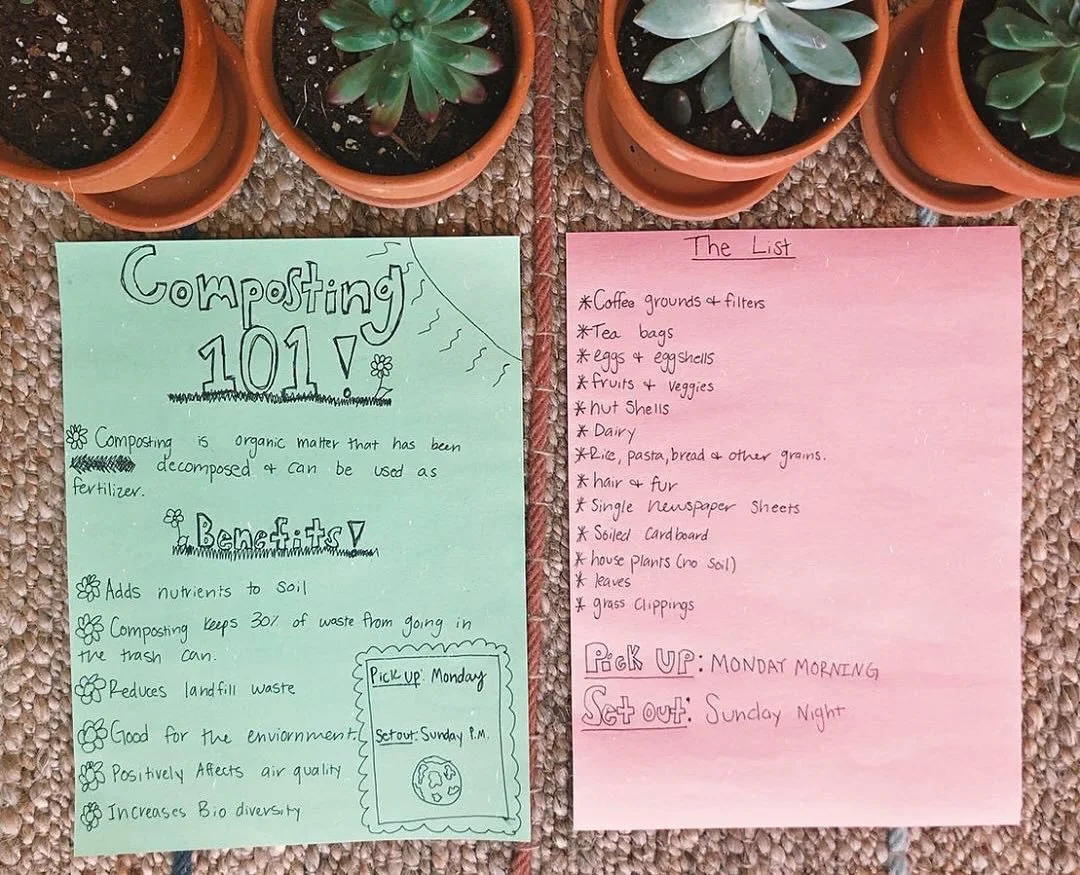 Composting
101!
Composting is organic matter that has been
decomposed + can be used as
fertilizer.
Benefits!
Adds nutrients to soil
Composting keeps 30% of waste from going in
the trash can.
Reduces landfill waste
Good for the enviornment
Positively Affects air quality
Increases Bio diversity
Pick up: Monday
Set out: Sunday P.M.
The List
*Coffee grounds + filters
*Tea bags
*eggs + eggshells
*fruits + veggies
*nut shells
*Dairy
*Rice, pasta, bread + other grains.
*hair + fur
*Single newspaper sheets
*Soiled cardboard
*house plants (no soil)
*leaves
*grass clippings
Pick UP: MONDAY MORNING
Set out: Sunday Night